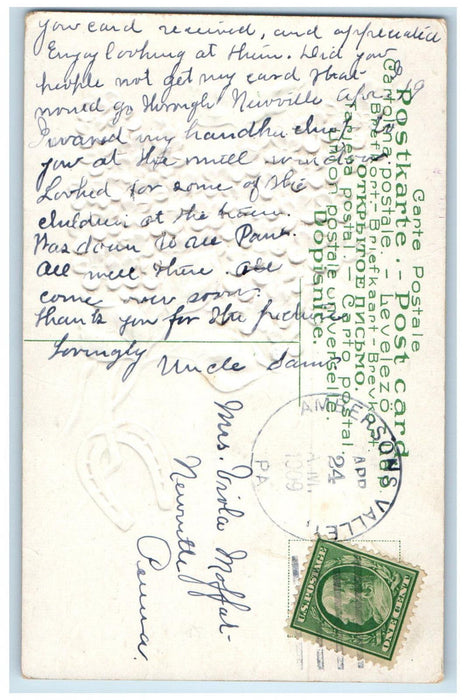 your card received, and appreciated
Enjoy looking at them. Did you
people not get my card that
would go through Newville Apr 19
I waved my handkerchief to
you at the mill window
Looked for some of the
children at the train.
Was down to all
All well there all
come soon.
thank you for the picture
Lovingly Uncle Sam
Mrs. Viola Moffat
Newville
Penna.
Carte Postale
Postkarte. - Post card
Cartolina postale. - Levelező-Lap
Briefkaart - Brevkort
ОТКРЫТОЕ ПИСЬМО.
postale universelle.
Dopisnice.
AMBERSONS VALLEY
APR
24
A.M.
1909
PA.
U.S. POSTAGE
ONE CENT